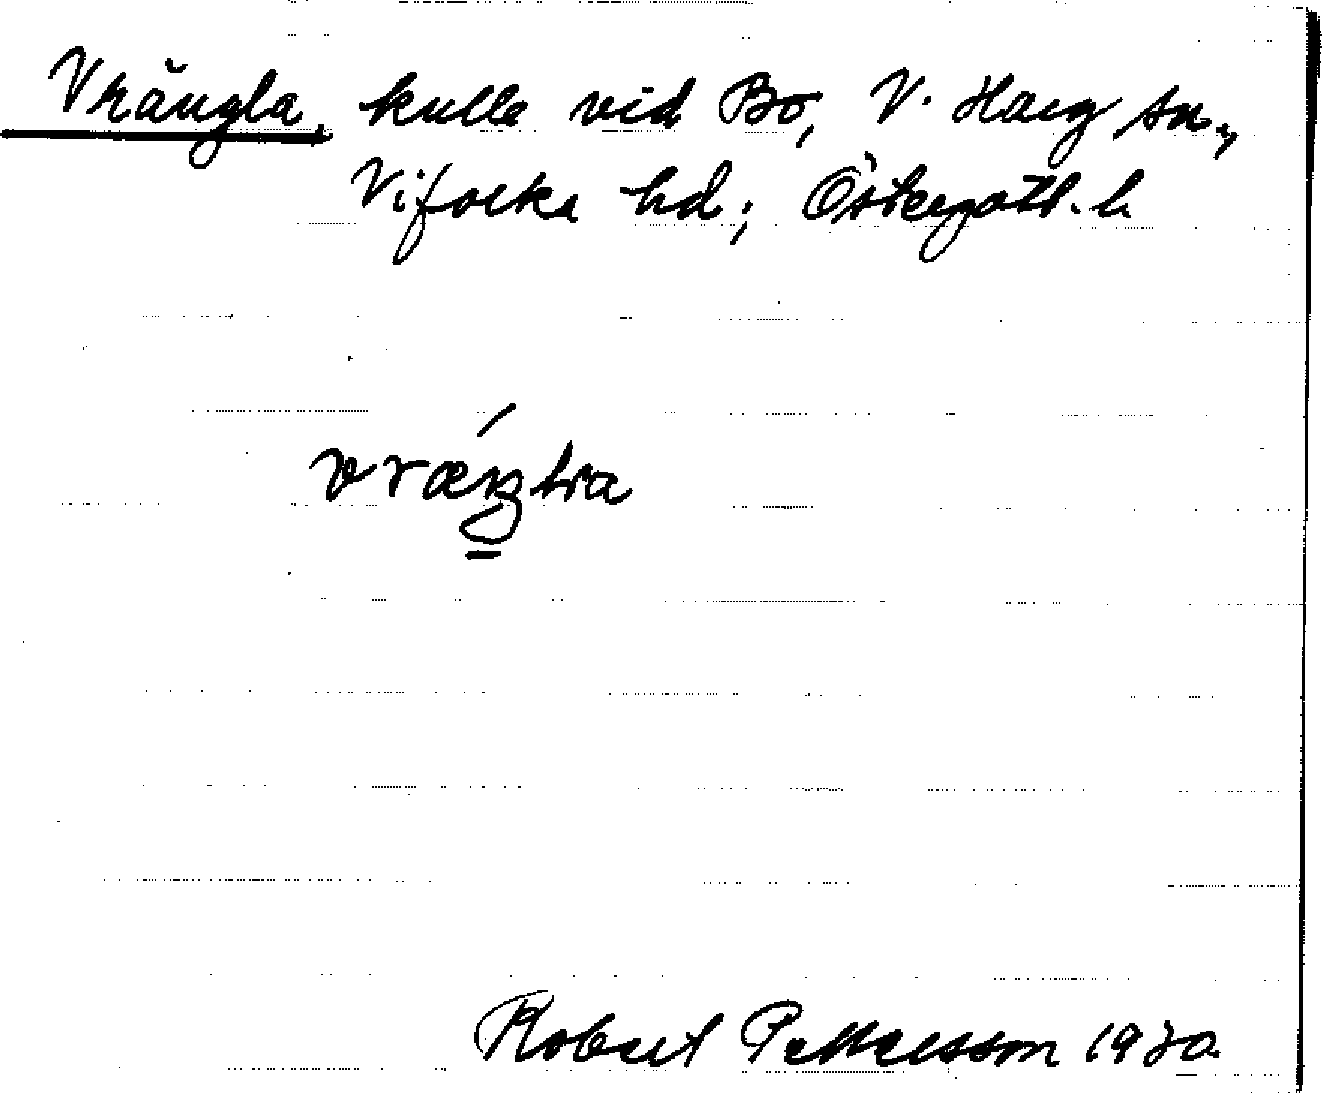 Vrängla, kulle vid Bo, V. Harg sn.,
Vifolka hd; Östergötl. l.
Robert Pettersson 1930.